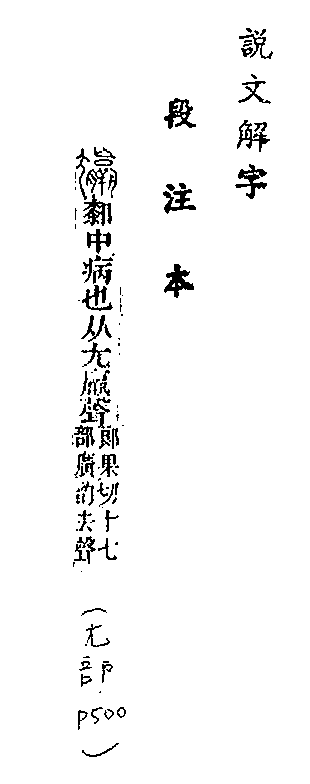 説文解字
段注本
厀中病也从尢𣎆聲
郎果切十七
部廣韵去聲
（尢部P500）